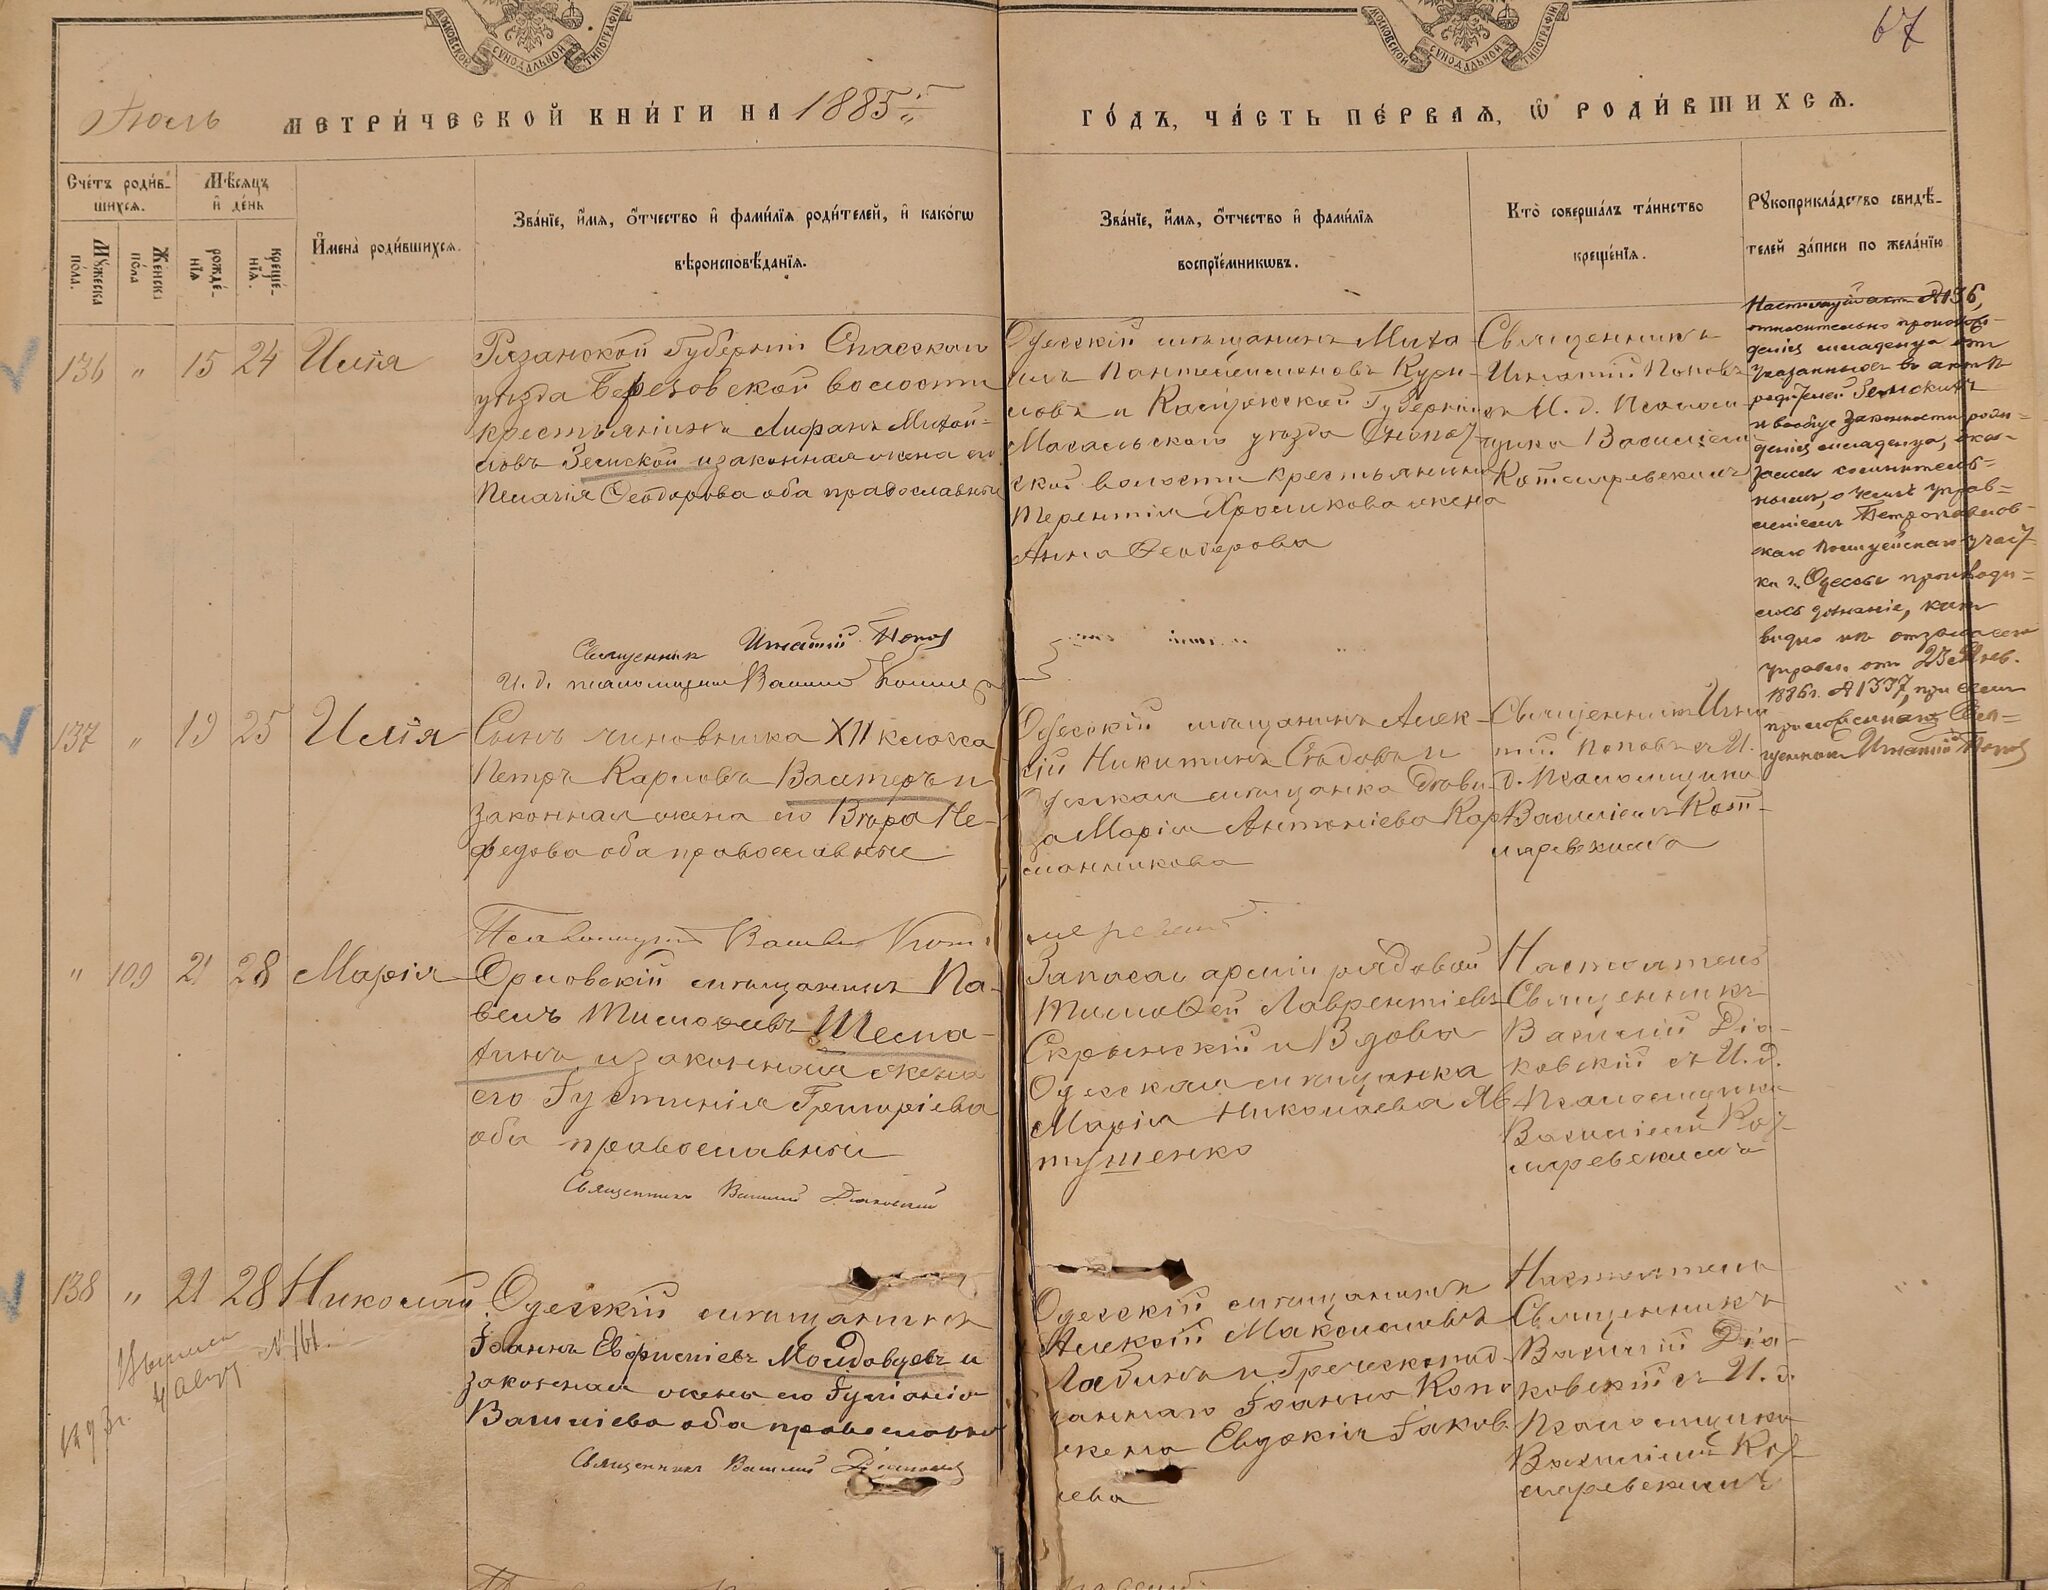 МОСКОВСКОЙ СУНОДАЛЬНОЙ ТИПОГРАФІИ
МОСКОВСКОЙ СУНОДАЛЬНОЙ ТИПОГРАФІИ
67
Іюль МЕТРИ́ЧЕСКОЙ КНИ́ГИ НА 1885
ГО́ДЪ, ЧА́СТЬ ПЕ́РВАЯ, Ѡ҆ РОДИ́ВШИХСЯ.
Сче́тъ роди́в-
шихся.
Мѣ́сяцъ
и҆ де́нь
Мꙋжеска
пола.
Же́нска
по́ла
рожде́-
нїѧ
креще́-
нїѧ.
И҆мена̀ роди́вшихсѧ.
Зва́нїе, и҆́мѧ, ѻ҆́тчество и҆ фами́лїѧ роди́телей, и҆ како́гѡ
вѣроисповѣ́данїѧ.
Зва́нїе, и҆́мѧ, ѻ҆́тчество и҆ фами́лїѧ
воспрїе́мникѡвъ.
Кто̀ соверша́лъ та́инство
креще́нїѧ.
Рꙋкоприкла́дство свидѣ́-
телей за́писи по жела́нїю
136 " 15 24 Илія
Рязанской Губерніи Спасскаго
уѣзда Березовской волости
крестьянинъ Михай-
ловъ Земской и законная жена его
Пелагія Ѳеодорова оба православные
Одесскій мѣщанинъ Миха-
илъ Пантелеимоновъ Кури-
ловъ и Калужской Губерніи
Масальскаго уѣзда
ской волости крестьянина
Терентія Хромикова жена
Анна Ѳеодорова
Священникъ
Игнатій Поповъ
съ И. д. Псалом-
щика Василіемъ
Котляревскимъ
Настоящій актъ №136,
относительно происхож-
денія младенца отъ
указанныхъ въ актѣ
родителей Земскихъ
и вообще законности рож-
денія младенца, ока-
зался сомнитель-
нымъ, о чемъ управ-
леніемъ Петропавлов-
скаго Полицейскаго участ-
ка г. Одессы производи-
лось дознаніе, какъ
видно изъ отзыва сего
управл. отъ 23 Янв.
1886г. №1337, при семъ
Свя-
щенникъ Игнатій Попов
Священникъ Игнатій Попов
И. д. псаломщика Василій Котляр
137 " 19 25 Илія
Сынъ чиновника XII класса
Петръ Карловъ Валтеръ и
законная жена его Вѣра Не-
федова оба православные
Одесскій мѣщанинъ Алек-
сій Никитинъ Сѣдовъ и
Одесская мѣщанка дѣви-
ца Марія Антоніева Кар-
манчикова
Священникъ Игна-
тій Поповъ съ И.
д. Псаломщика
Василіемъ Кот-
ляревскимъ
Псаломщикъ Василій Котляревскій
" 109 21 28 Марія
Орловскій мѣщанинъ Па-
велъ Тимоѳеевъ Шема-
кинъ и законная жена
его Іустинія Григоріева
оба православные
Священникъ Василій Діаковскій
Запаса арміи рядовой
Тимоѳей Лаврентіевъ
Скрынскій и Вдова
Одесская мѣщанка
Марія Николаева Яв-
тушенко
Настоятель
Священникъ
Василій Діа-
ковскій съ И. д.
Псаломщика
Василіемъ Кот-
ляревскимъ
138 " 21 28 Николай
4 Авгу № 161.
1893г.
Одесскій мѣщанинъ
Іоаннъ Евфиміевъ Молдовцевъ и
законная жена его Іуліанія
Василіева оба православные
Священникъ Василій Діаковскій
Одесскій мѣщанинъ
Алексій Максимовъ
Лабинъ и Греческоподд-
аннаго Іоанна
жена Евдокія Іаков-
лева
Настоятель
Священникъ
Василій Діа-
ковскій съ И. д.
Псаломщика
Василіемъ Кот-
ляревскимъ